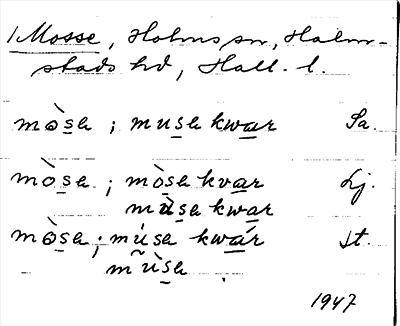 1 Mosse, Holms sn, Halm-
stads hd, Hall. l.
mòsɐ ; musɐ kwar Sa.
mòsɐ ; mòsɐ kvar Lj.
mùsɐ kwar
mòsɐ ; músɐ kwár St.
mùsɐ
1947